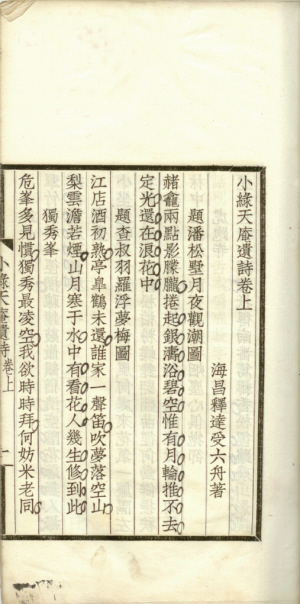 小綠天庵遺詩卷上
海昌釋達受六舟著
題潘松墅月夜觀潮圖
赭龕兩點影朦朧捲起銀濤浴碧空惟有月輪推不去
定光還在浪花中
題查叔羽羅浮夢梅圖
江店酒初熟亭皐鶴未還誰家一聲笛吹夢落空山
梨雲澹若煙山月寒于水中有看花人幾生修到此
獨秀峯
危峯多見慣獨秀最凌空我欲時時拜何妨米老同
小綠天庵遺詩
卷上
一